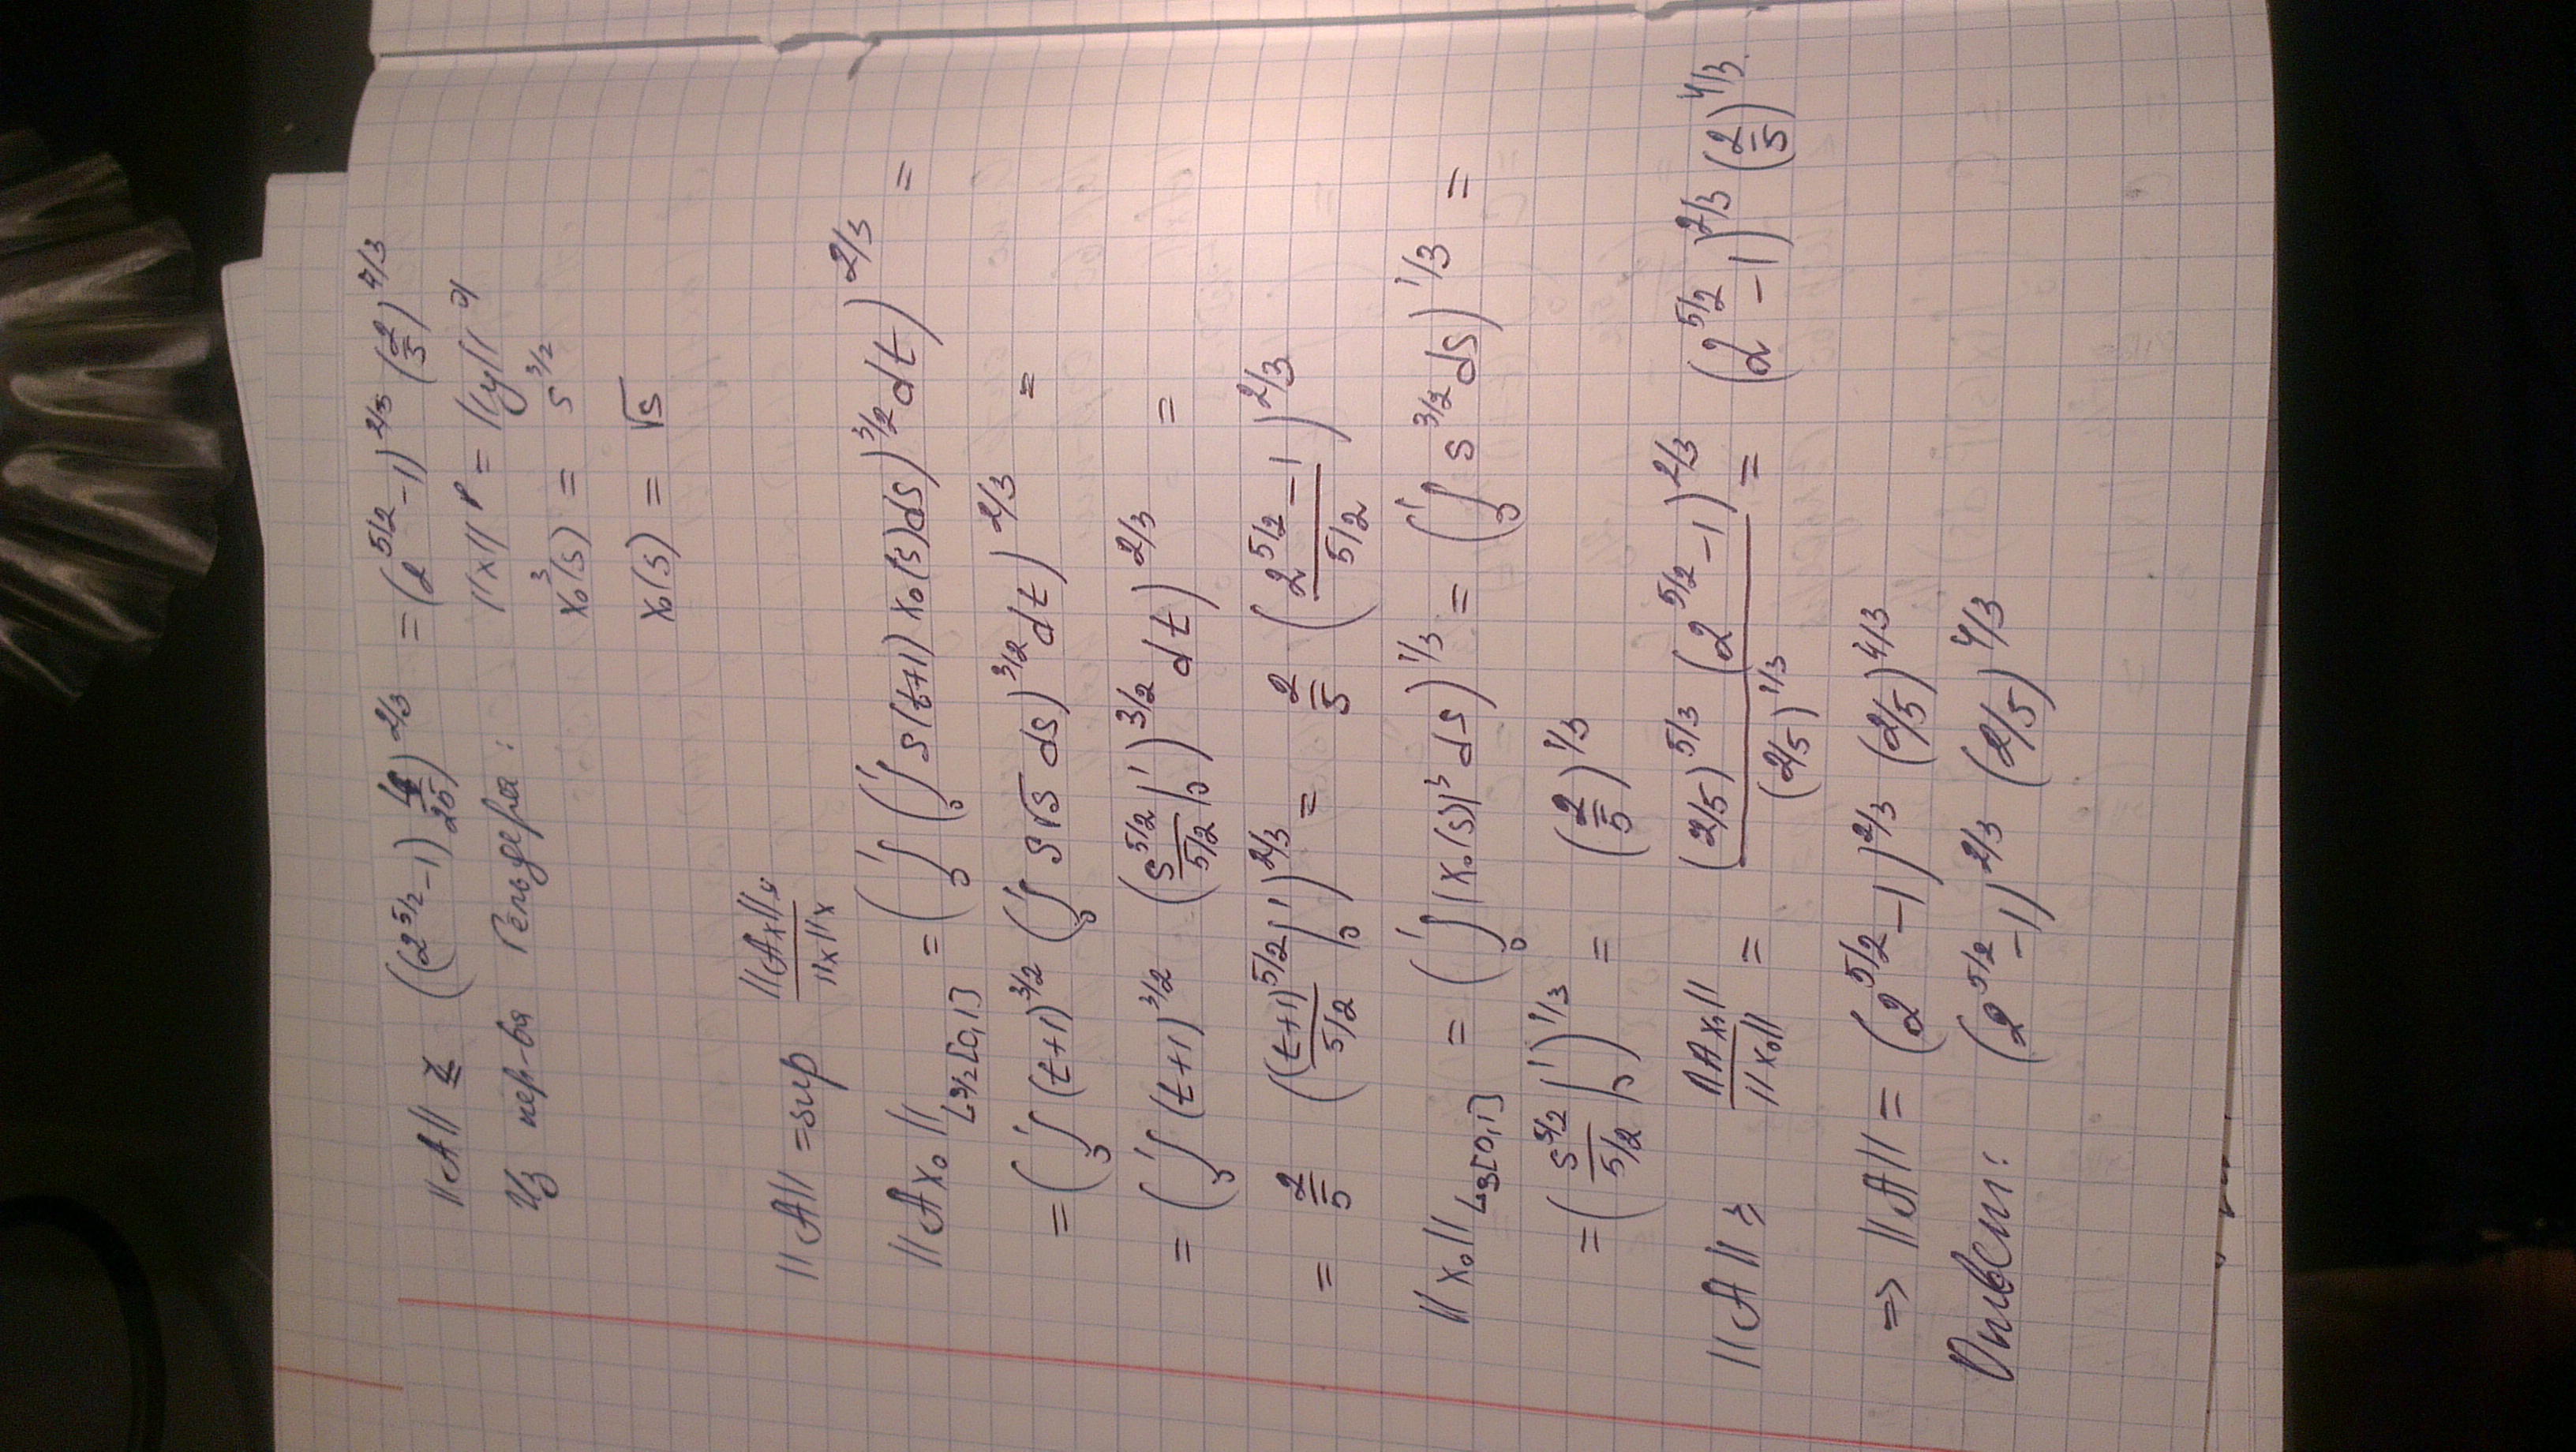 ||A|| ≤ ((2^{5/2} - 1) 4/25)^{2/3} = (2^{5/2} - 1)^{2/3} (2/5)^{4/3}
Из нер-ва Гельдера: ||x||^p = ||y||^q
x₀³(s) = s^{3/2}
x₀(s) = √s
||A|| = sup ||Ax||_y / ||x||_x
||Ax₀||_{L_{3/2}[0,1]} = (∫₀¹ (∫₀¹ s(t+1) x₀(s) ds)^{3/2} dt)^{2/3} =
= (∫₀¹ (t+1)^{3/2} (∫₀¹ s√s ds)^{3/2} dt)^{2/3} =
= (∫₀¹ (t+1)^{3/2} (s^{5/2}/5/2 |₀¹)^{3/2} dt)^{2/3} =
= 2/5 ((t+1)^{5/2}/5/2 |₀¹)^{2/3} = 2/5 ((2^{5/2} - 1)/5/2)^{2/3}
||x₀||_{L₃[0,1]} = (∫₀¹ |x₀(s)|³ ds)^{1/3} = (∫₀¹ s^{3/2} ds)^{1/3} =
= (s^{5/2}/5/2 |₀¹)^{1/3} = (2/5)^{1/3}
||A|| ≥ ||Ax₀||/||x₀|| = (2/5)^{5/3} (2^{5/2} - 1)^{2/3} / (2/5)^{1/3} = (2^{5/2} - 1)^{2/3} (2/5)^{4/3}.
⇒ ||A|| = (2^{5/2} - 1)^{2/3} (2/5)^{4/3}
Ответ: (2^{5/2} - 1)^{2/3} (2/5)^{4/3}